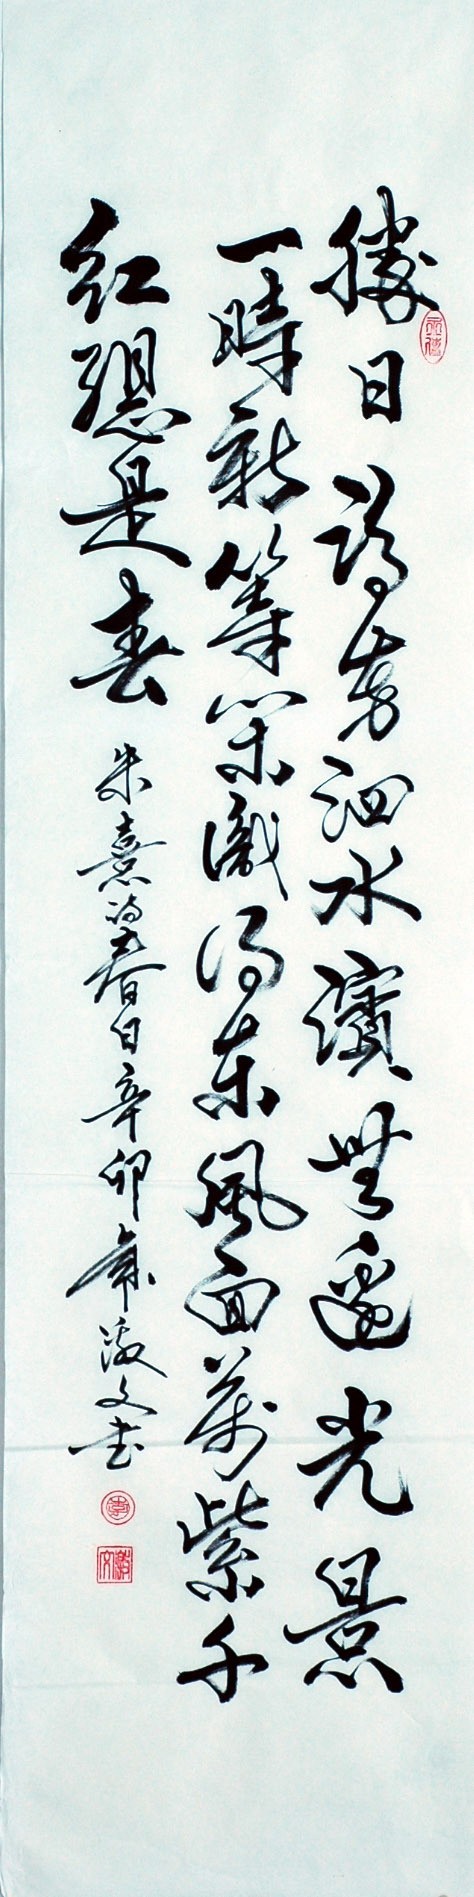 勝日尋芳泗水濱無邊光景
一時新等閒識得東風面萬紫千
紅總是春
朱熹詩春日辛卯年文书